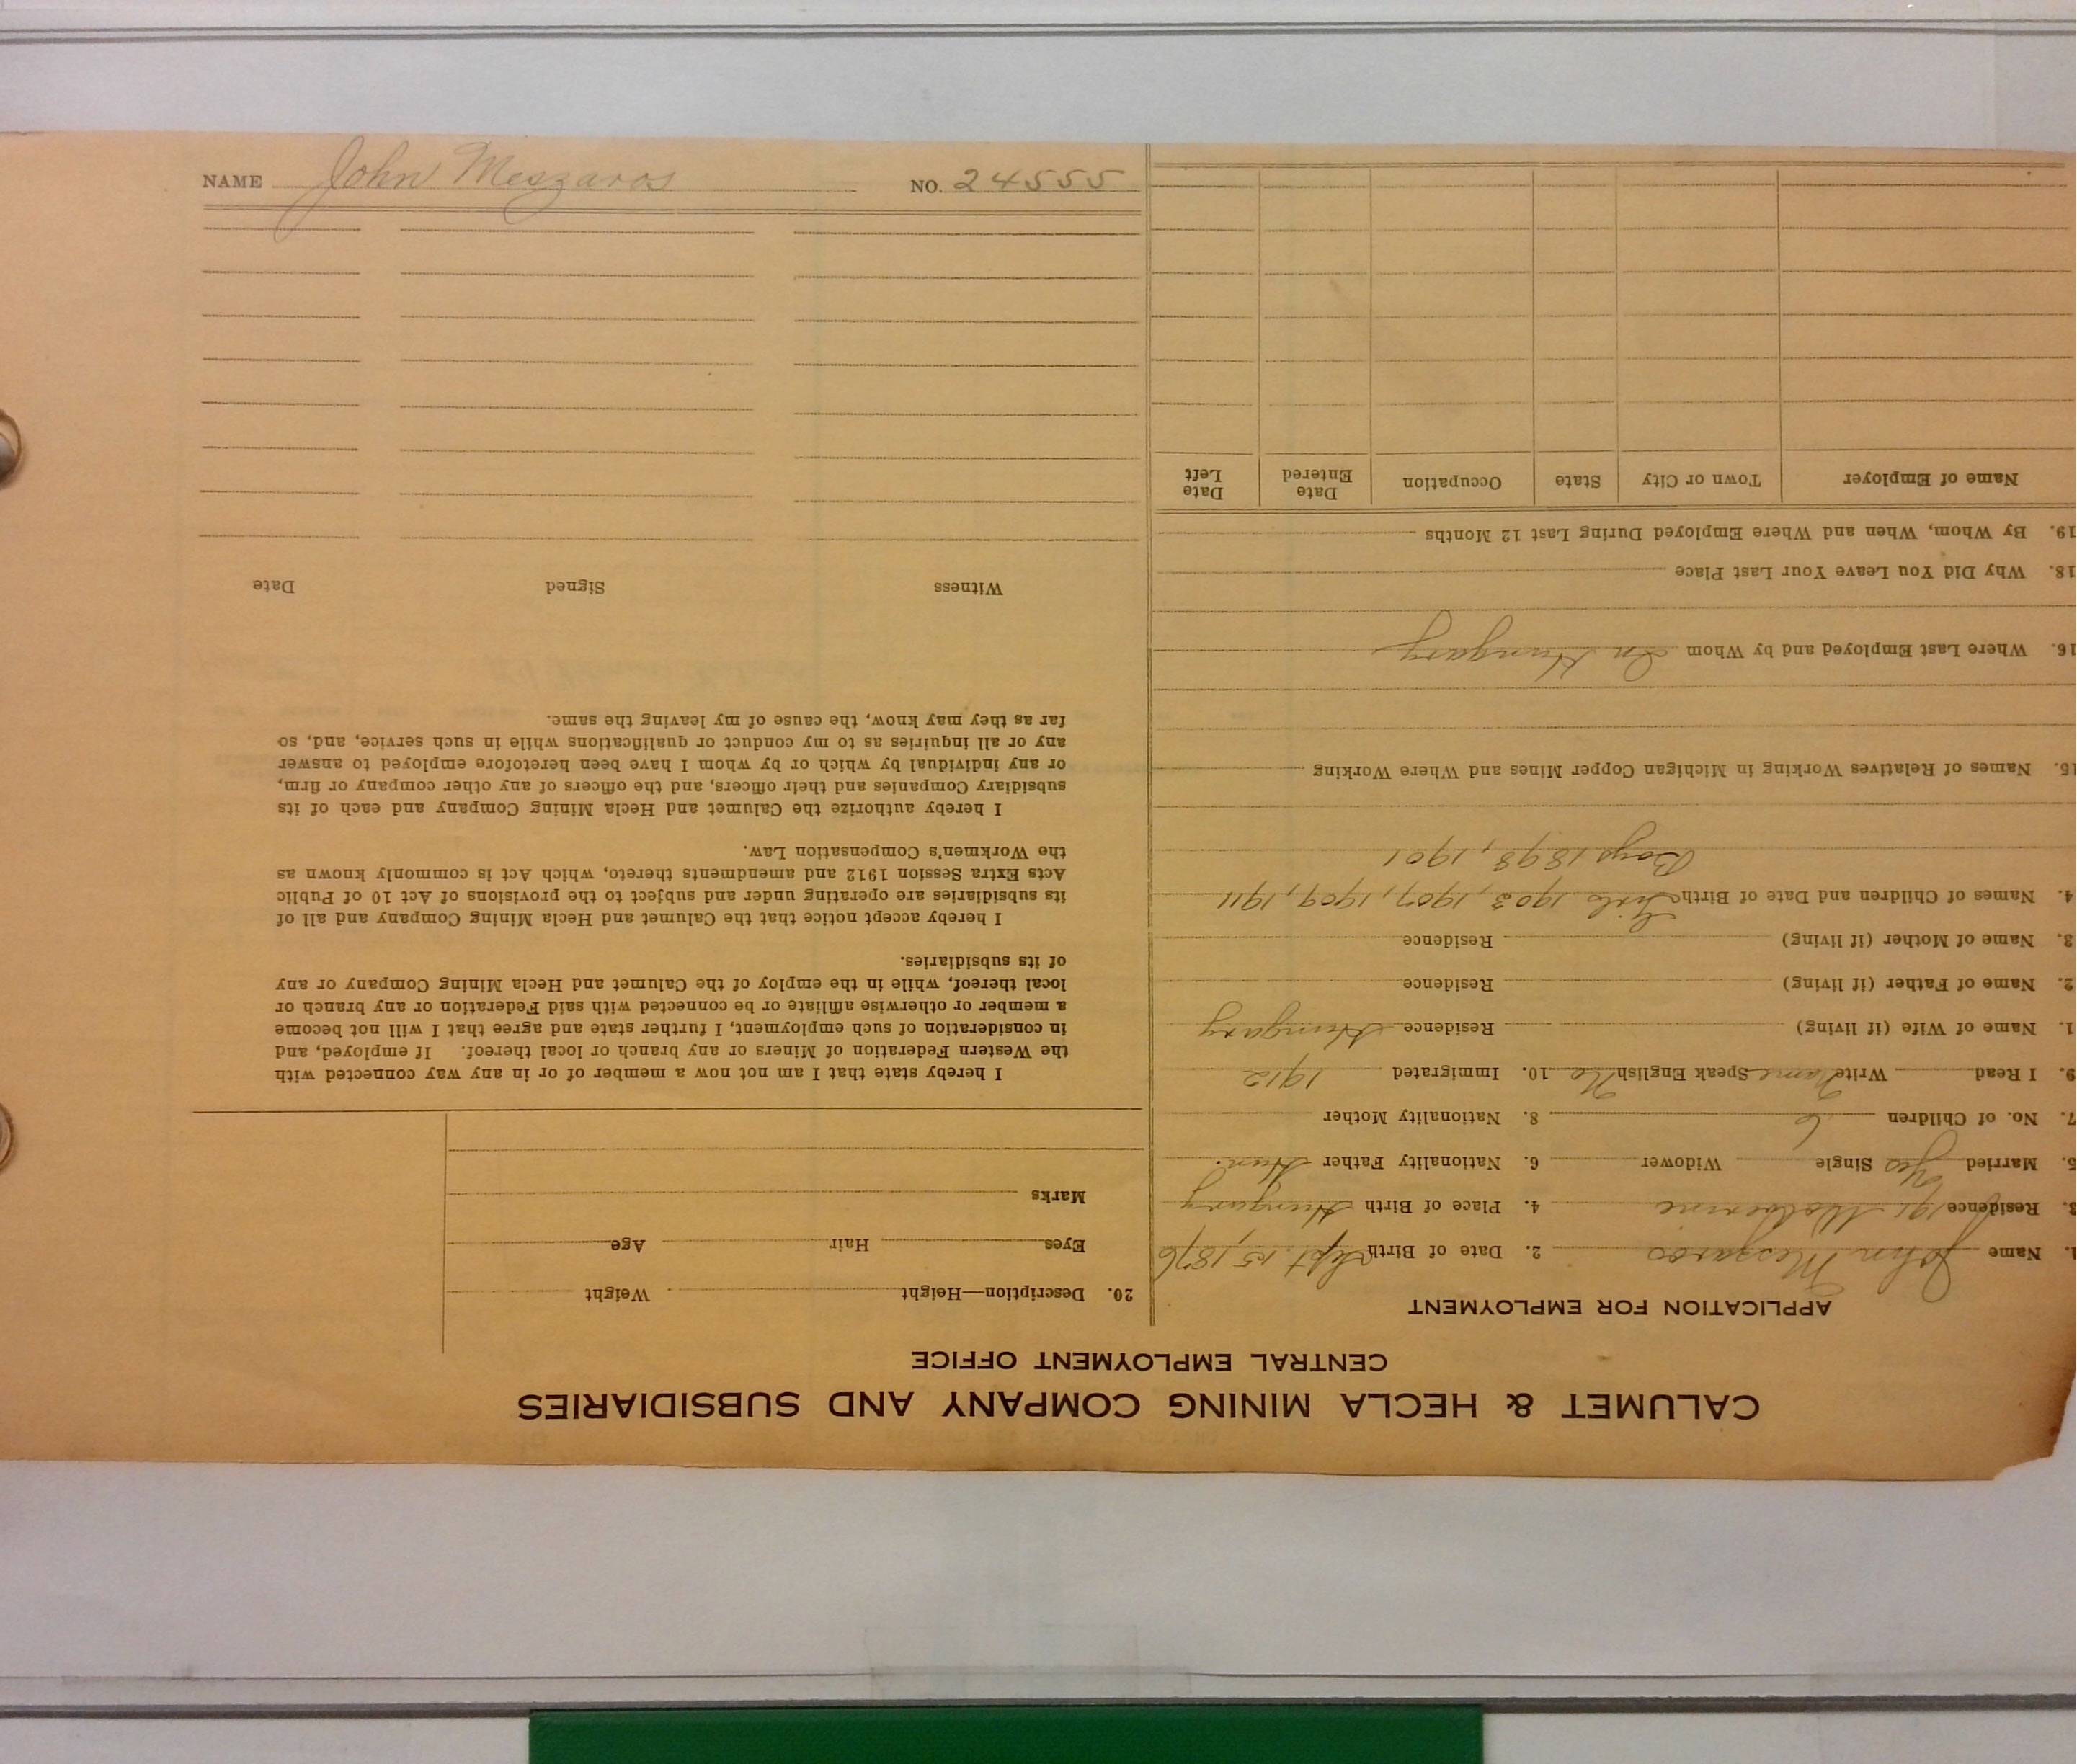 CALUMET & HECLA MINING COMPANY AND SUBSIDIARIES
CENTRAL EMPLOYMENT OFFICE
APPLICATION FOR EMPLOYMENT
1. Name John Meszaros 2. Date of Birth Sept. 15, 1876
3. Residence 191 Wolverine 4. Place of Birth Hungary
5. Married Yes Single Widower 6. Nationality Father Hun.
7. No. of Children 6 8. Nationality Mother
9. I Read Write Name Speak English No 10. Immigrated 1912
1. Name of Wife (if living) Residence Hungary
2. Name of Father (if living) Residence
3. Name of Mother (if living) Residence
4. Names of Children and Date of Birth Girls 1903, 1907, 1909, 1911
Boys 1898, 1901
15. Names of Relatives Working in Michigan Copper Mines and Where Working
16. Where Last Employed and by Whom In Hungary
18. Why Did You Leave Your Last Place
19. By Whom, When and Where Employed During Last 12 Months
Name of Employer Town or City State Occupation Date Entered Date Left
20. Description—Height Weight
Eyes Hair Age
Marks
I hereby state that I am not now a member of or in any way connected with
the Western Federation of Miners or any branch or local thereof. If employed, and
in consideration of such employment, I further state and agree that I will not become
a member or otherwise affiliate or be connected with said Federation or any branch or
local thereof, while in the employ of the Calumet and Hecla Mining Company or any
of its subsidiaries.
I hereby accept notice that the Calumet and Hecla Mining Company and all of
its subsidiaries are operating under and subject to the provisions of Act 10 of Public
Acts Extra Session 1912 and amendments thereto, which Act is commonly known as
the Workmen's Compensation Law.
I hereby authorize the Calumet and Hecla Mining Company and each of its
subsidiary Companies and their officers, and the officers of any other company or firm,
or any individual by which or by whom I have been heretofore employed to answer
any or all inquiries as to my conduct or qualifications while in such service, and, so
far as they may know, the cause of my leaving the same.
Witness Signed Date
NAME John Meszaros NO. 24555